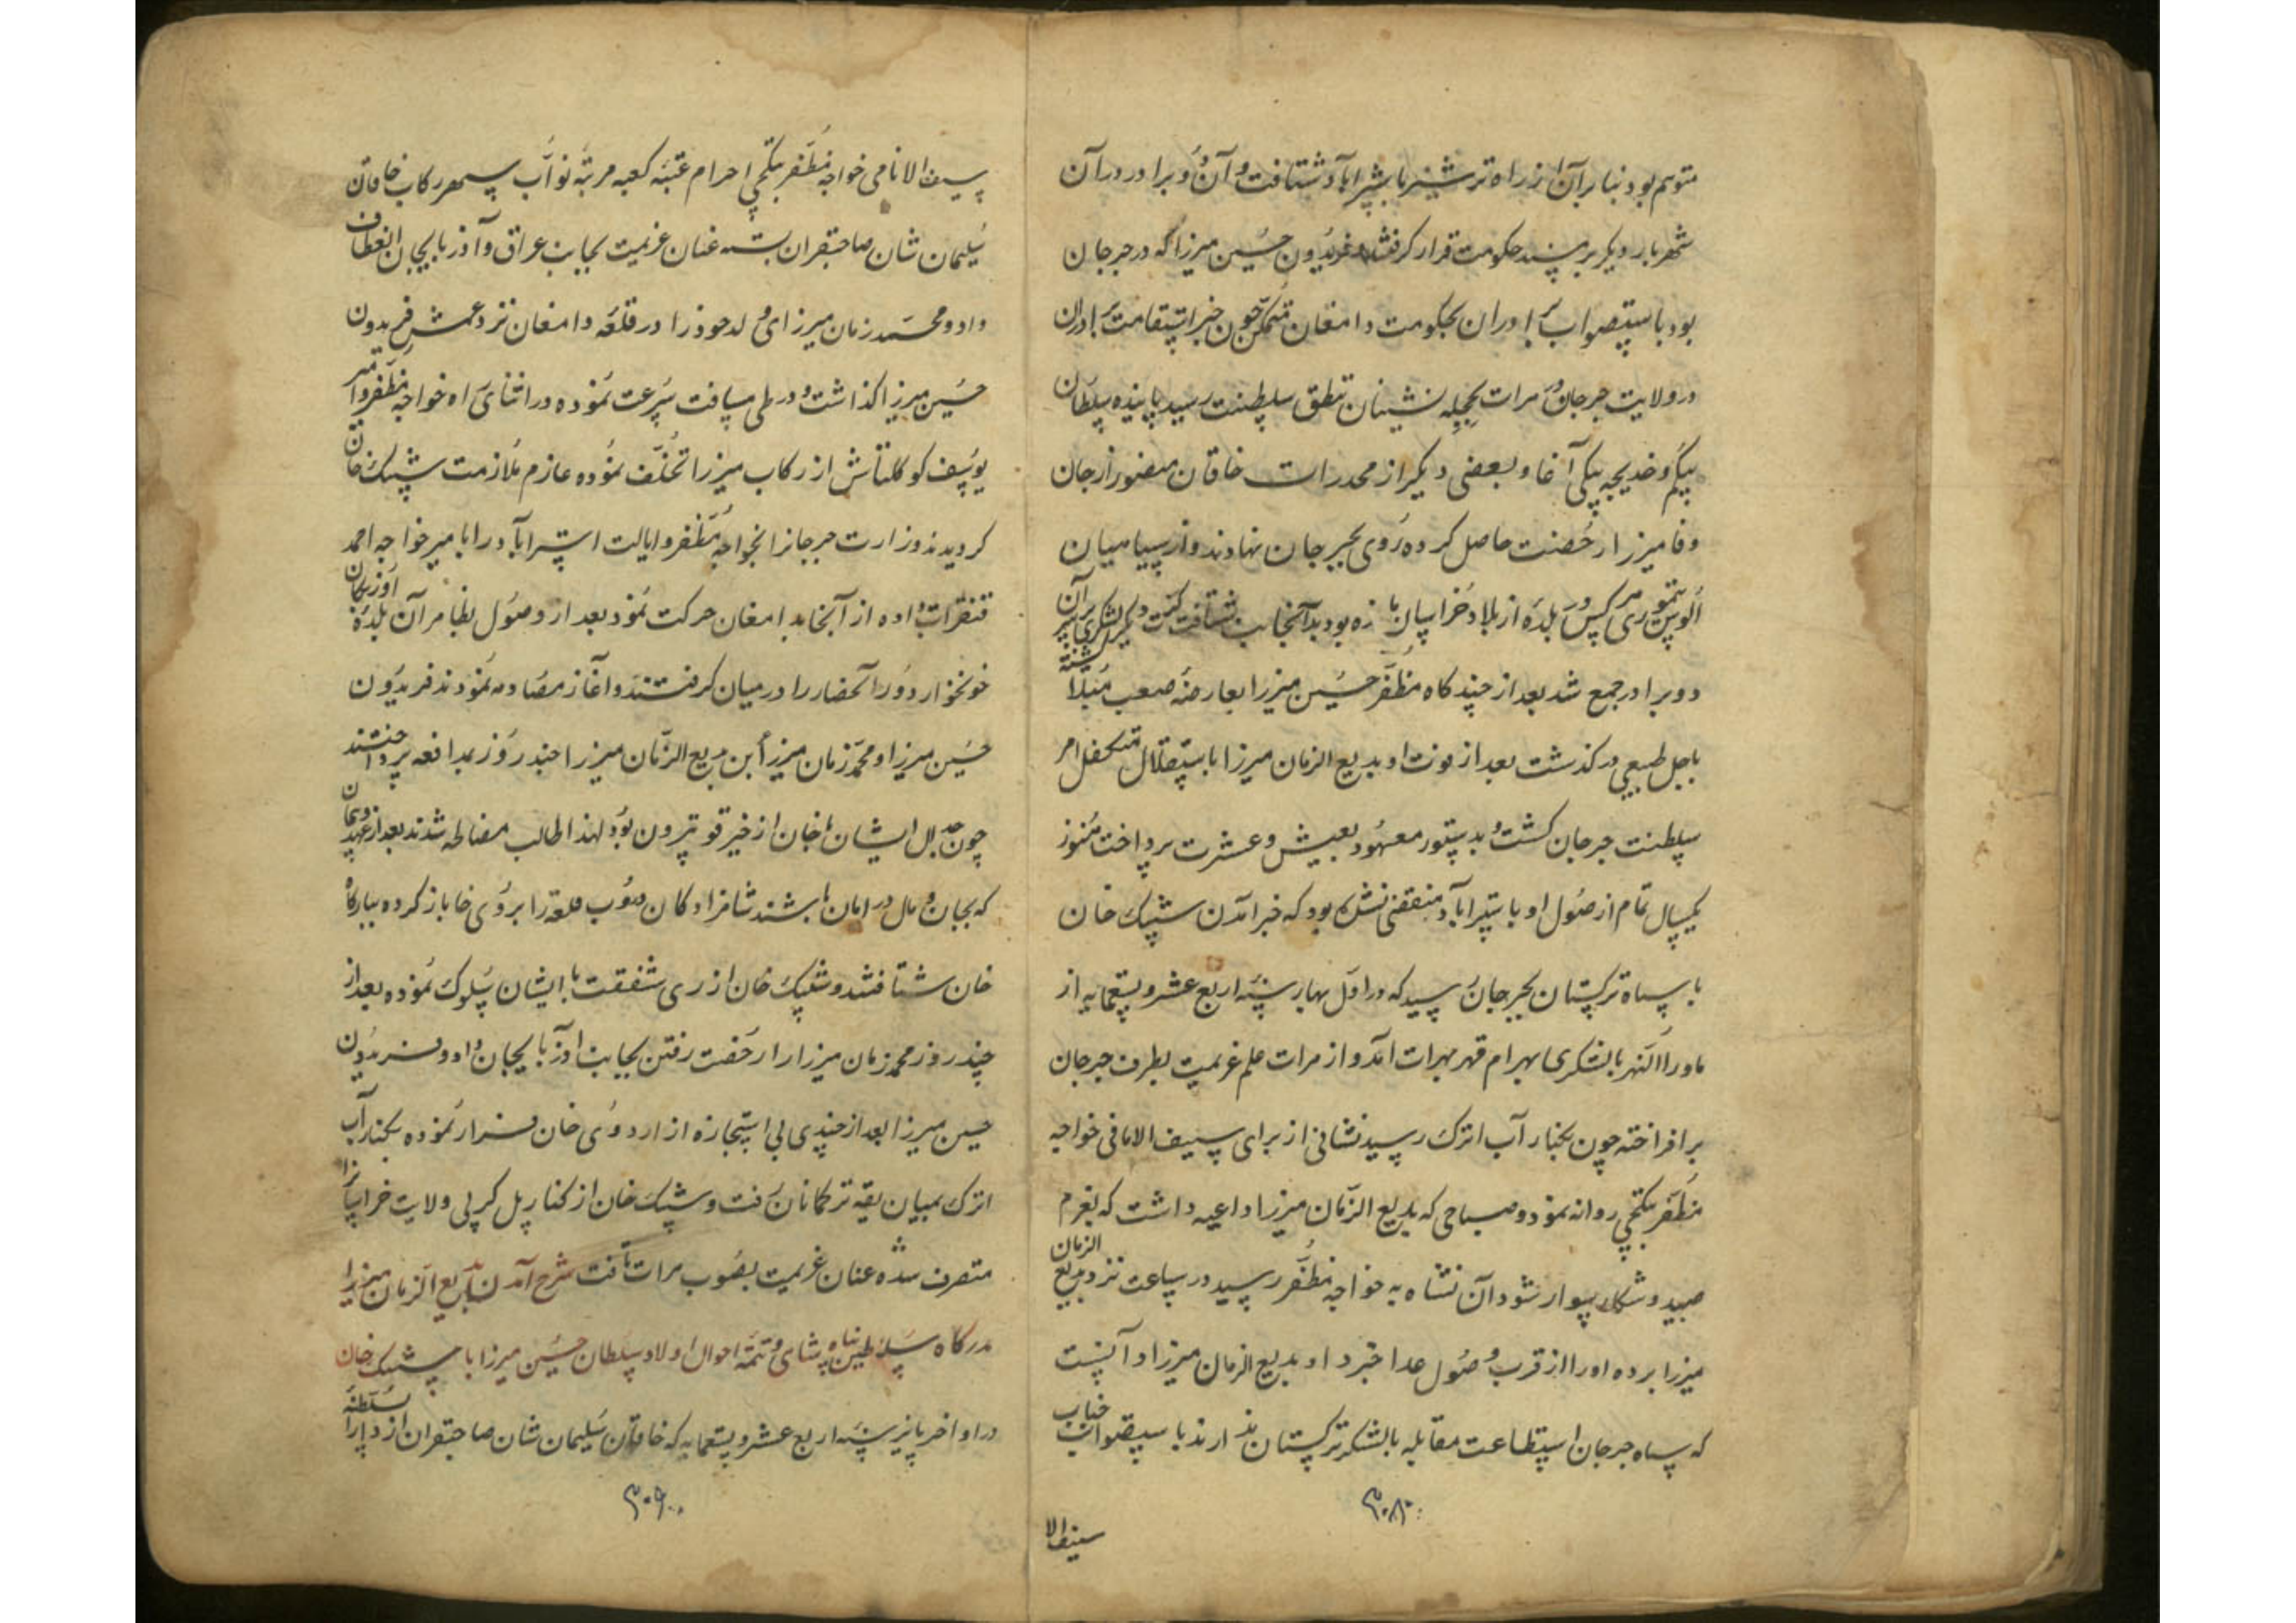 متوهم بود بنابرآن از راه ترشیز باستراباد شتافت و آن دو برادر در آن
شهر بار دیگر بر مسند حکومت قرار گرفتند و فریدون حسین میرزا که در جرجان
بود باستصواب برادران بحکومت دامغان متمکن چون خبر استقامت برادران
در ولایت جرجان و مرات بحجله نشینان تتق سلطنت رسید پاینده سلطان
بیکم و خدیجه بیکی آغا و بعضی دیکر از مخدرات خاقان منصور از جان
وفا میرزا رخصت حاصل کرده روی بجرجان نهادند و از سپاهیان
الوس تیموری هرکس در بلده از بلاد خراسان بازه بود بدآنجانب شتافت کشت و دیکر لشکری بر سر آن
دو برادر جمع شد بعد از چند کاه مظفر حسین میرزا بعارضه صعب مبتلا کشته
باجل طبیعی درکذشت بعد از فوت او بدیع الزمان میرزا باستقلال متکفل امر
سلطنت جرجان کشت و بدستور معهود بعیش و عشرت پرداخت هنوز
یکسال تمام از وصول او باستراباد منقضی نشده بود که خبر آمدن شیبک خان
با سپاه ترکستان بجرجان رسید که در اول بهار سنه اربع عشر و تسعمایه از
ماوراالنهر با لشکری بهرام قهر بهرات آمد و از هرات علم عزیمت بطرف جرجان
برافراخته چون بکنار آب اترک رسید نشانی از برای سیف الانامی خواجه
مظفر بتکچی روانه نمود و صباحی که بدیع الزمان میرزا داعیه داشت که بعزم
صید و شکار سوار شود آن نشان به خواجه مظفر رسید در ساعت نزد بدیع الزمان
میرزا برده او را از قرب وصول اعدا خبر داد و بدیع الزمان میرزا دانست
که سپاه جرجان استطاعت مقابله با لشکر ترکستان ندارند باستصواب جناب
۳۰۸
سیف الا
سیف الانامی خواجه مظفر بتکچی احرام عتبه کعبه مرتبه نواب سپهر رکاب خاقان
سلیمان شان صاحبقران بسته عنان عزیمت بجانب عراق و آذربایجان انعطاف
داد و محمد زمان میرزای ولد خود را در قلعه دامغان نزد عمش فریدون
حسین میرزا گذاشت و در طی مسافت سرعت نموده در اثنای راه خواجه مظفر و امیر
یوسف کوکلتاش از رکاب میرزا تخلف نموده عازم ملازمت شیبک خان
کردیدند وزارت جرجان را بخواجه مظفر و ایالت استراباد را با میر خواجه احمد
قنقرات داده از آنجا بدامغان حرکت نمود بعد از وصول بظاهر آن بلده اوزبکان
خونخوار دور آن حصار را درمیان کرفتند و آغاز مصادمه نمودند فریدون
حسین میرزا و محمد زمان میرزا ابن بدیع الزمان میرزا چند روز بمدافعه پرداختند
چون جدال ایشان با خان از خیر قوت بیرون بود لهذا طالب مصالحه شدند بعد از عهد و پیمان
که بجان و مال در امان باشند شاهزادکان دروب قلعه را بروی خان باز کرده ببارکاه
خان شتافتند و شیبک خان از روی شفقت با ایشان سلوک نموده بعد از
چند روز محمد زمان میرزا را رخصت رفتن بجانب اذربایجان داد و فریدون
حسین میرزا بعد از چندی بی استجازه از اردوی خان فرار نموده بکنار آب
اترک بمیان یقه ترکمانان رفت و شیبک خان از کنار پل کرپی ولایت خراسانرا
متصرف شده عنان عزیمت بصوب هرات تافت شرح آمدن بدیع الزمان میرزا
بدرکاه سلاطین پناه شاهی و تتمه احوال اولاد سلطان حسین میرزا با شیبک خان
در اواخر پائیز سنه اربع عشر و تسعمایه که خاقان سلیمان شان صاحبقران از دارالسلطنه
۳۰۹